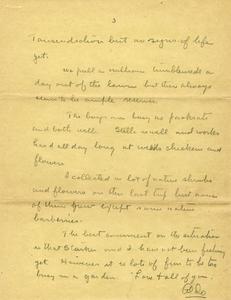 3
but no signs of life
yet.
We pull a million tumbleweeds a
day out of the lawn but there always
seem to be ample reserve.
The boys are busy as
and both well. Still small and works
hard all day long at weeds chickens and
flowers.
I collected a lot of native shrubs
and flowers on the last trip but none
of them grew except some native
barberries.
The best comment on the situation
is that and I have not been fishing
yet. However it is lots of fun to be too
busy in a garden. Love to all of you.